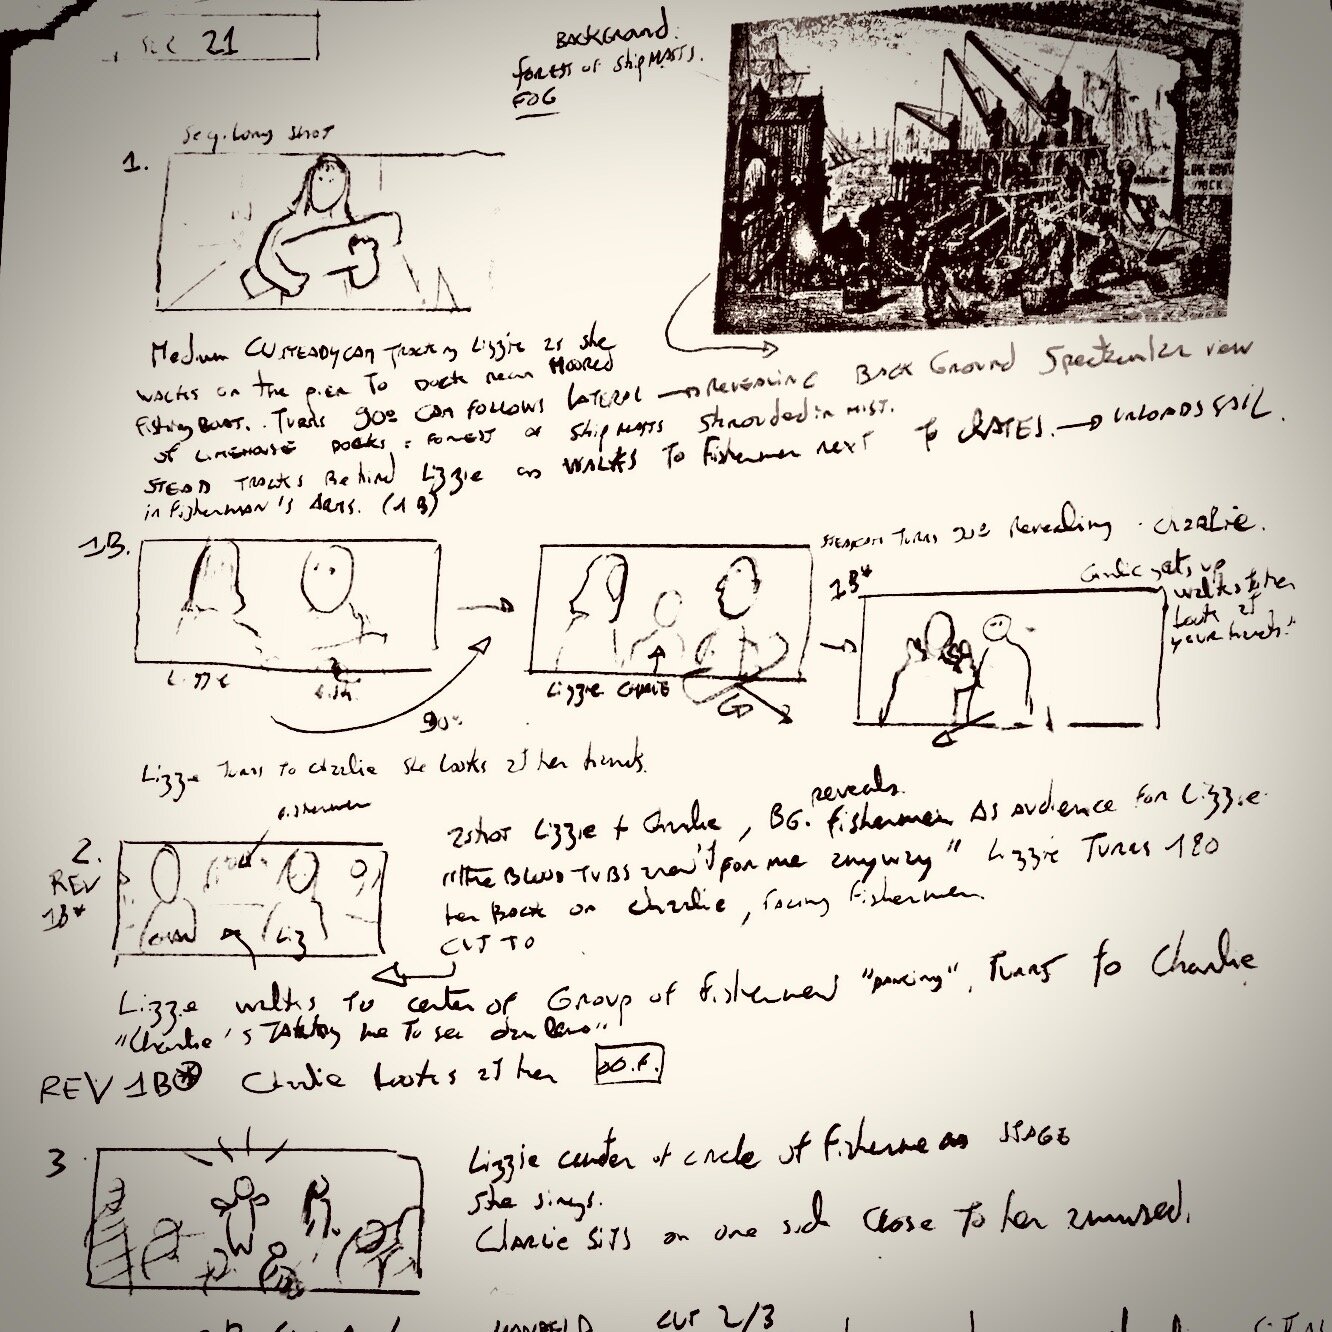 21
BACKGROUND.
FOREST of Ship MASTS.
FOG
Seq. Long Shot
1.
Medium CU STEADYCAM Tracking Lizzie as she
walks on the pier To Dock near MOORED
Fishing BOAT. Turns 90º CAM FOLLOWS LATERAL → REVEALING BACK GROUND Spectacular view
of LIMEHOUSE DOCKS: FOREST of Ship MASTS Shrouded in MIST.
STEAD TRACKS Behind Lizzie as WALKS To Fisherman next To CRATES. → UNLOADS
in Fisherman's Arms. (1B)
1B.
STEADCAM Turns 90º Revealing Charlie.
1B*
Charlie gets up
walks to her
look at
your hands."
Lizzie
Lizzie CHARLIE
90º
Lizzie Turns To Charlie She Looks at her hands.
Fishermen
2.
REV
1B*
reveals
2shot Lizzie + Charlie, BG. Fishermen As audience For Lizzie
"The Blood TUBS aren't for me anyway" Lizzie Turns 180
her Back on Charlie, Facing Fishermen.
CUT TO
CHAR Liz
Lizzie walks To center of Group of Fishermen "Dancing", Turns to Charlie
"Charlie's Taking me To see Dan Leno"
REV 1B* Charlie Looks at her
3
Lizzie center of circle of Fishermen as STAGE
She sings.
Charlie SITS on one side Close To her amused.
CUT 2/3